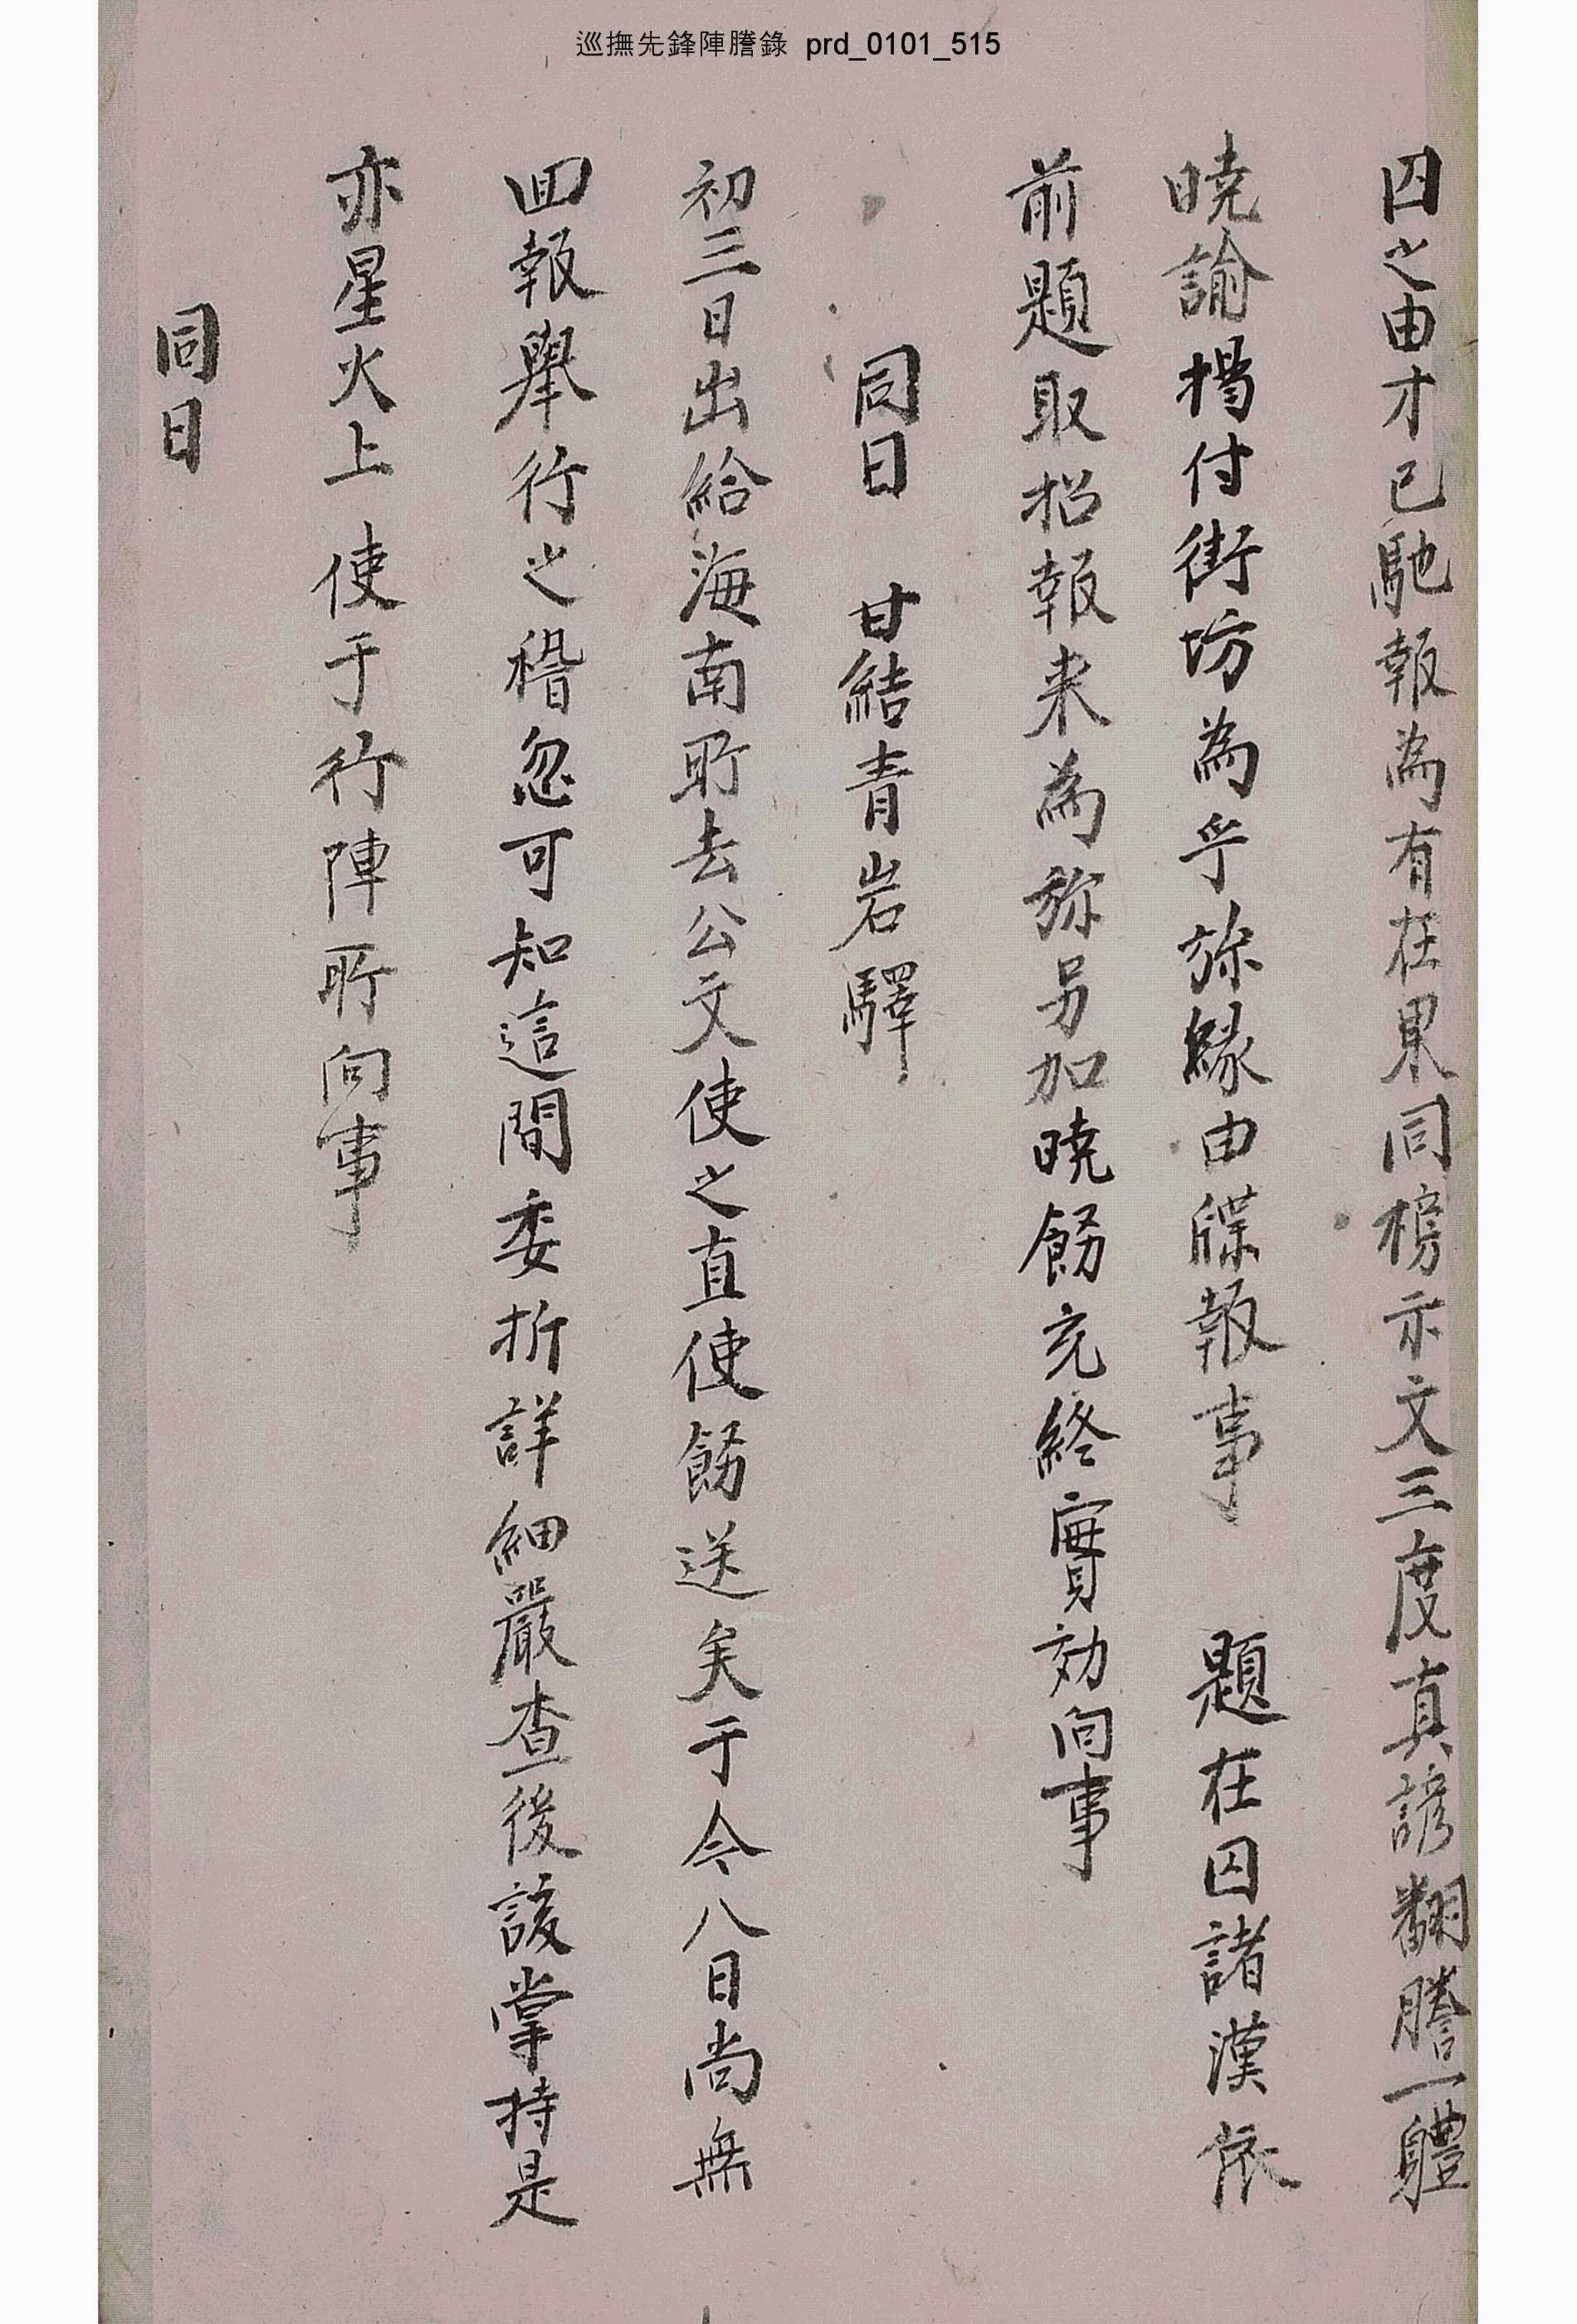 巡撫先鋒陣謄錄 prd_0101_515
囚之由才已馳報為有在果同榜示文三度真諺翻謄一軆
曉諭揭付街坊為乎㫆緣由牒報事 題在囚諸漢依
前題取招報来為㫆另加曉飭克終實効向事
同日 甘結青岩驛
初三日出給海南所去公文使之直使飭送矣于今八日尚無
回報擧行之稽忽可知這間委折詳細嚴查後該掌持是
亦星火上 使于行陣所向事
同日